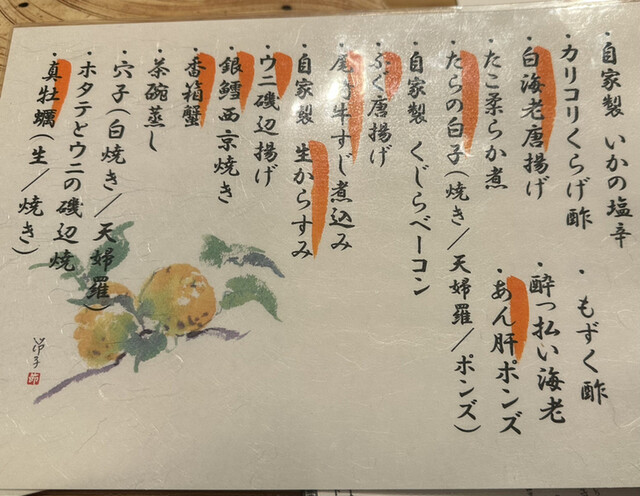 ・自家製 いかの塩辛
・もずく酢
・カリコリくらげ酢
・酔っ払い海老
・白海老唐揚げ
・あん肝ポンズ
・たこ柔らか煮
・たらの白子(焼き/天婦羅/ポンズ)
・自家製 くじらベーコン
・ふぐ唐揚げ
・尾崎牛すじ煮込み
・自家製 生からすみ
・ウニ磯辺揚げ
・銀鱈西京焼き
・香箱蟹
・茶碗蒸し
・穴子(白焼き/天婦羅)
・ホタテとウニの磯辺焼
・真牡蠣(生/焼き)